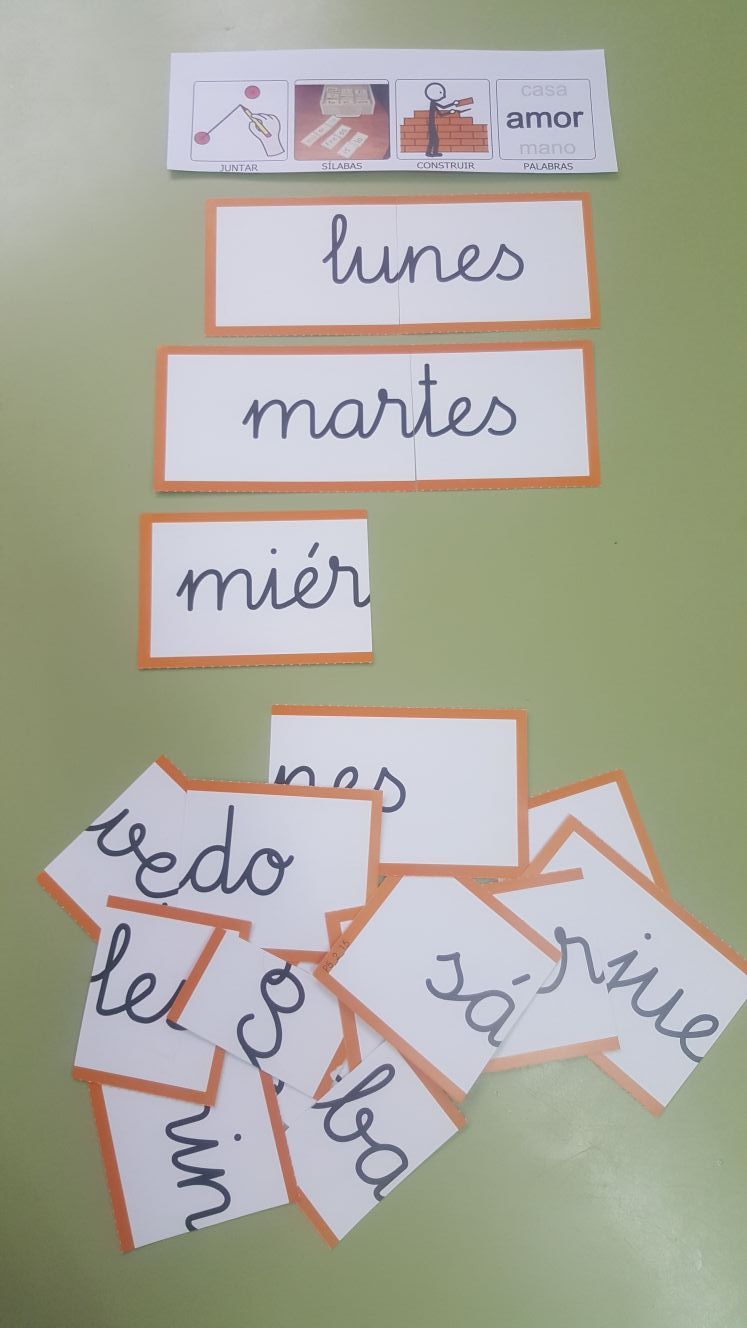 casa
amor
mano
JUNTAR SÍLABAS CONSTRUIR PALABRAS
lunes
martes
miér
nes
ve
do
le
sá
r
jue
in
ba